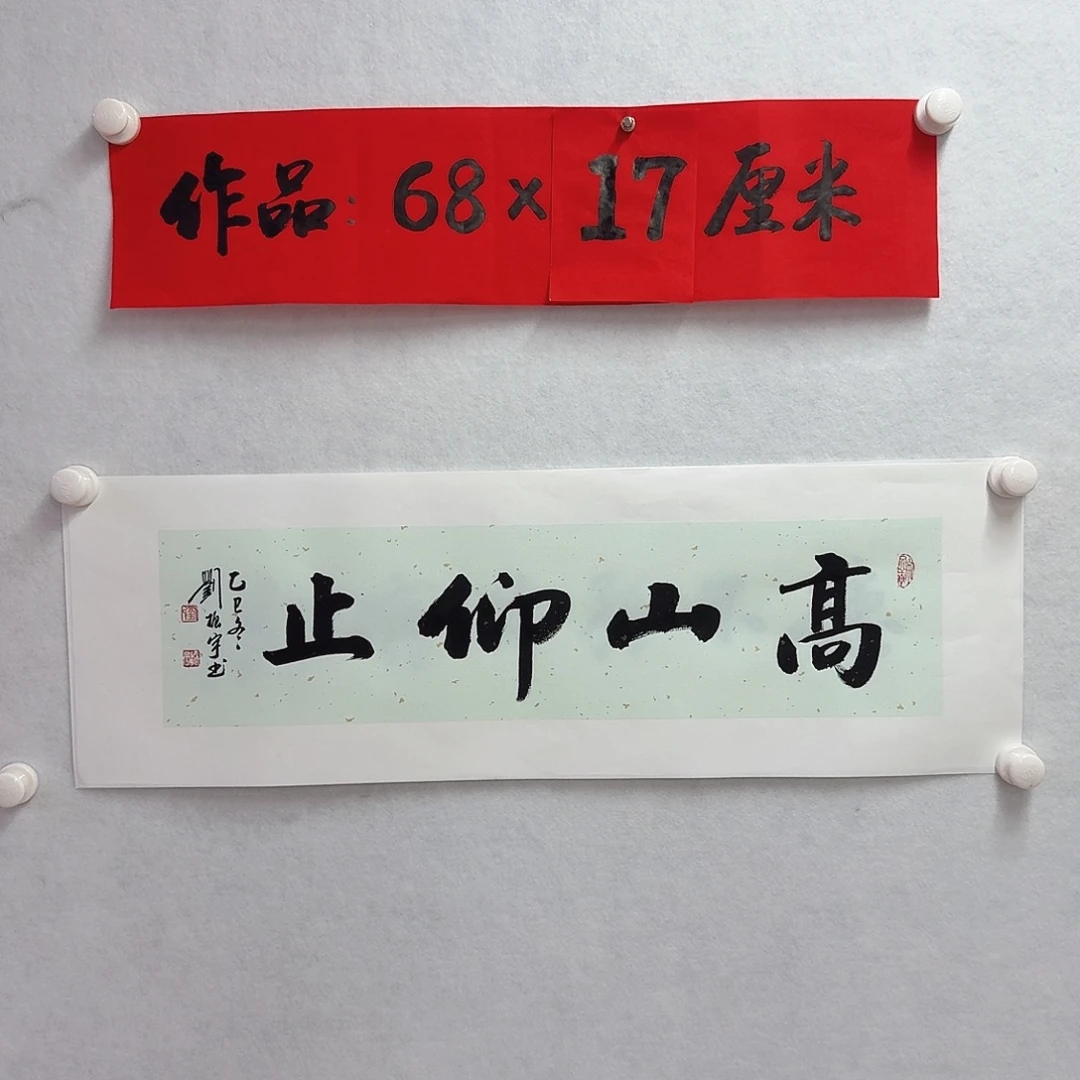 作品：68×17厘米
高山仰止
乙巳冬
劉松宇书